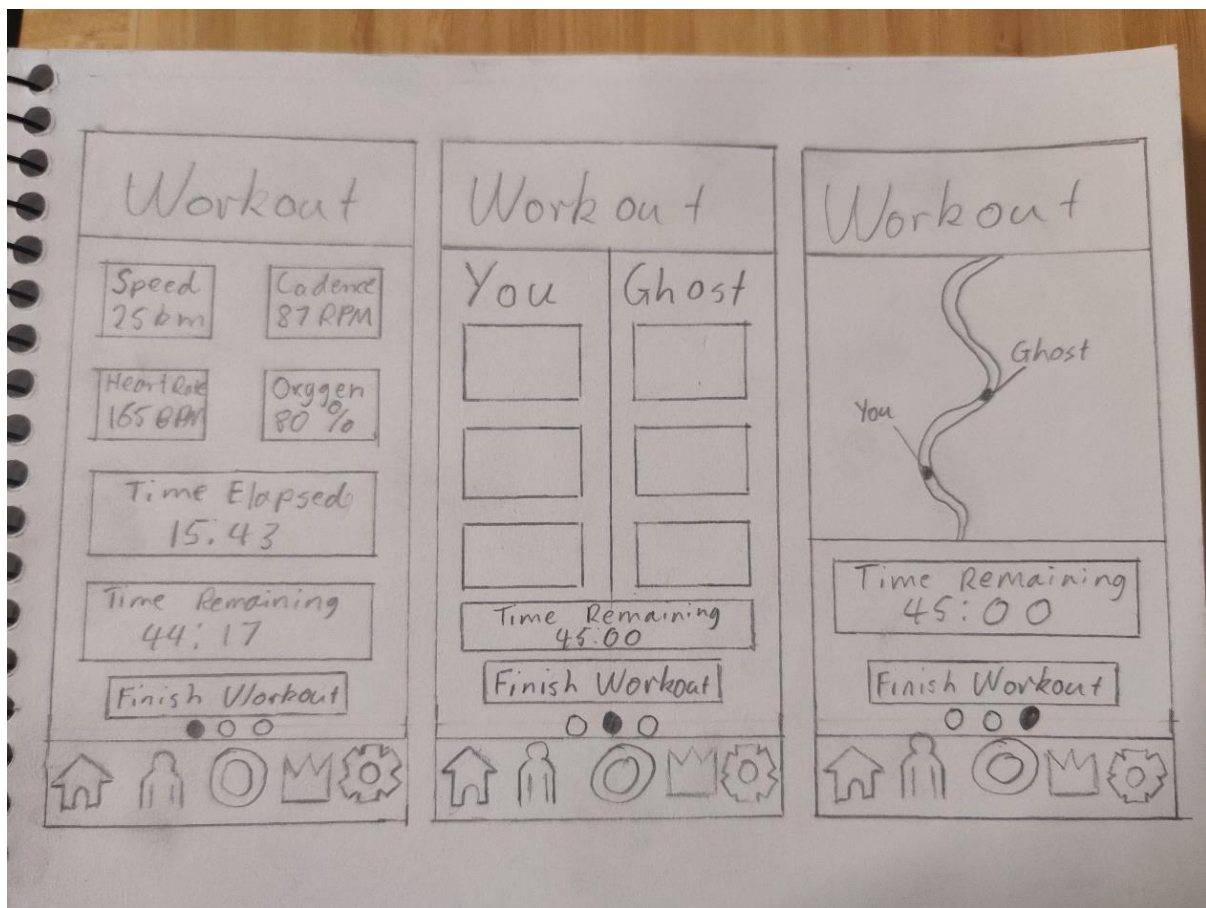 Workout
Speed
25 km
Cadence
87 RPM
Heart Rate
165 BPM
Oxygen
80 %
Time Elapsed
15:43
Time Remaining
44:17
Finish Workout
Workout
You
Ghost
Time Remaining
45:00
Finish Workout
Workout
Ghost
You
Time Remaining
45:00
Finish Workout